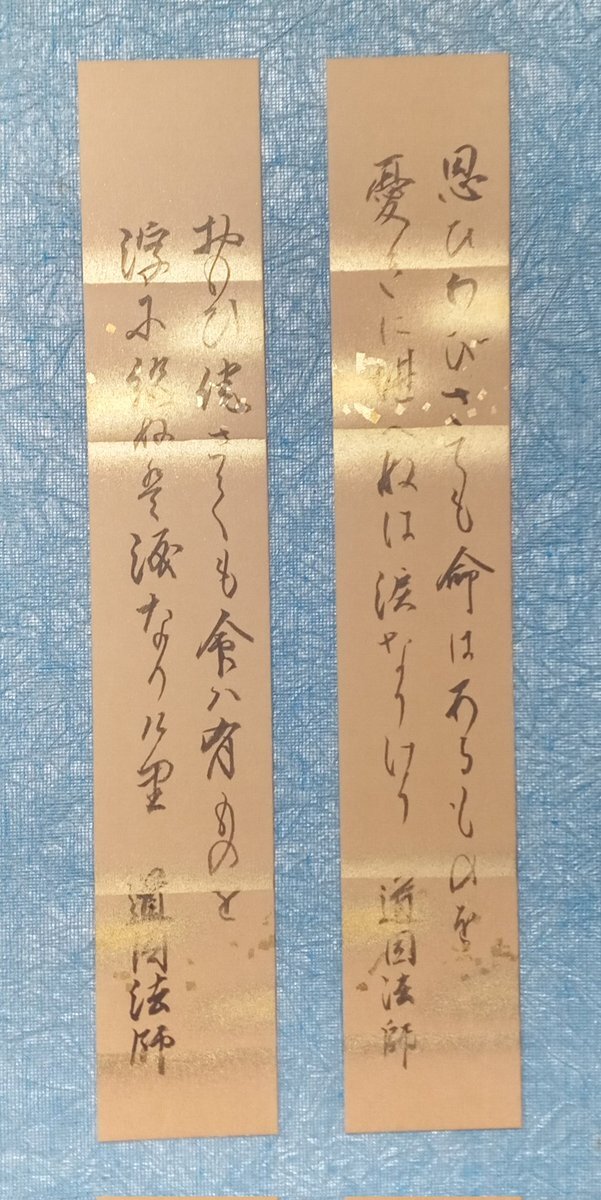 思ひわびさても命はあるものを
憂きに堪へぬは涙なりけり
道因法師
おもひ侘さても命ハ有ものを
尓絶ぬ者涙なりけ里
道因法師